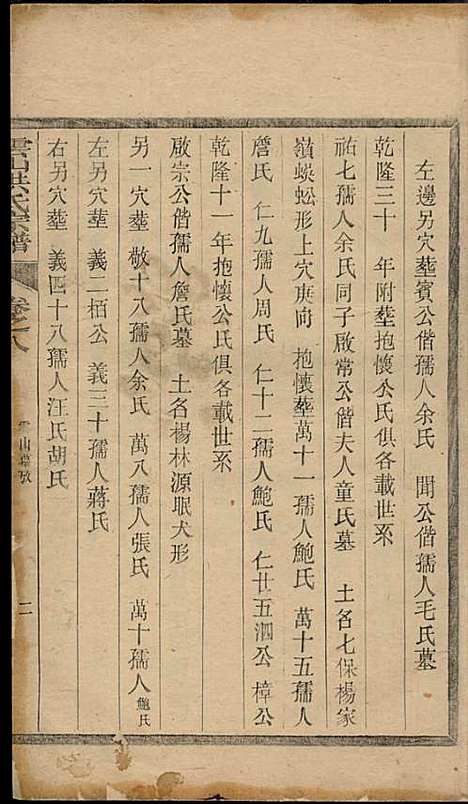 左邊另穴塟賓公偕孺人余氏　聞公偕孺人毛氏墓
乾隆三十　年附塟抱懷公氏俱各載世系
祐七孺人余氏同子啟常公偕夫人童氏墓　土名七保楊家
嶺蜈蚣形上穴庚向　抱懷塟萬十一孺人鮑氏　萬十五孺人
詹氏　仁九孺人周氏　仁十二孺人鮑氏　仁廿五泗公　樟公
乾隆十一年抱懷公氏俱各載世系
啟宗公偕孺人詹氏墓　土名楊林源眠犬形
另一穴塟　敬十八孺人余氏　萬八孺人張氏　萬十孺人鮑氏
左另穴塟　義二栢公　義三十孺人蔣氏
右另穴塟　義四十八孺人汪氏胡氏
雲山洪氏宗譜　卷之八　山墓　二